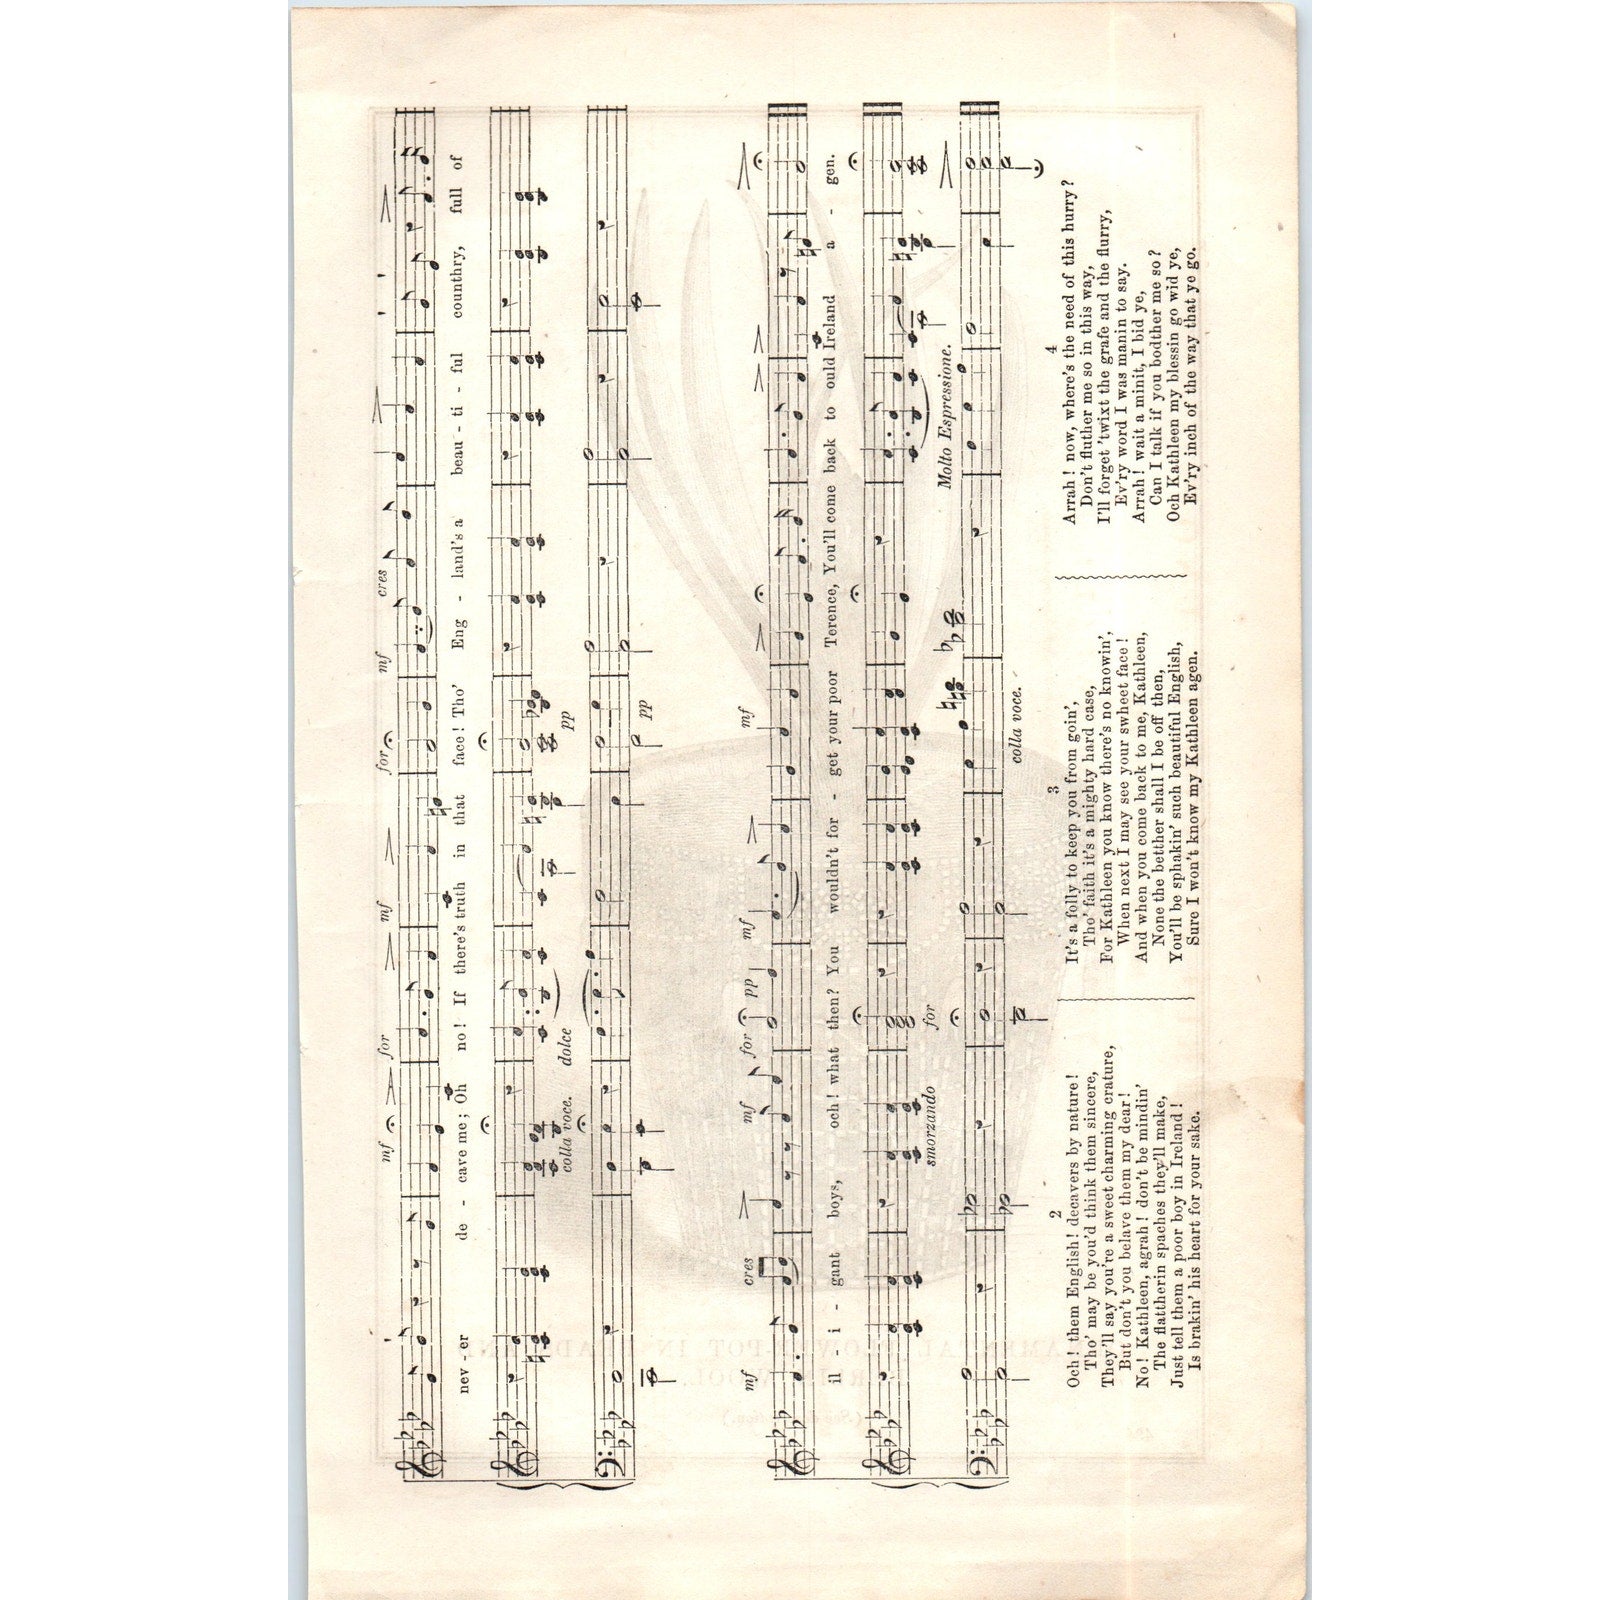 mf for mf for mf cres
nev - er de - cave me; Oh no! If there's truth in that face! Tho' Eng - land's a beau - ti - ful counthry, full of
colla voce. dolce pp
pp
mf cres mf for pp mf mf
il - i - gant boys, och! what then? You wouldn't for - get your poor Terence, You'll come back to ould Ireland a - gen.
smorzando for Molto Espressione.
colla voce.
2
Och! them English! decavers by nature!
Tho' may be you'd think them sincere,
They'll say you're a sweet charming crature,
But don't you belave them my dear!
No! Kathleen, agrah! don't be mindin'
The flattherin spaches they'll make,
Just tell them a poor boy in Ireland!
Is brakin' his heart for your sake.
3
It's a folly to keep you from goin',
Tho' faith it's a mighty hard case,
For Kathleen you know there's no knowin',
When next I may see your swheet face!
And when you come back to me, Kathleen,
None the betther shall I be off then,
You'll be sphakin' such beautiful English,
Sure I won't know my Kathleen agen.
4
Arrah! now, where's the need of this hurry?
Don't fluther me so in this way,
I'll forget 'twixt the grafe and the flurry,
Ev'ry word I was manin to say.
Arrah! wait a minit, I bid ye,
Can I talk if you bodther me so?
Och Kathleen my blessin go wid ye,
Ev'ry inch of the way that ye go.